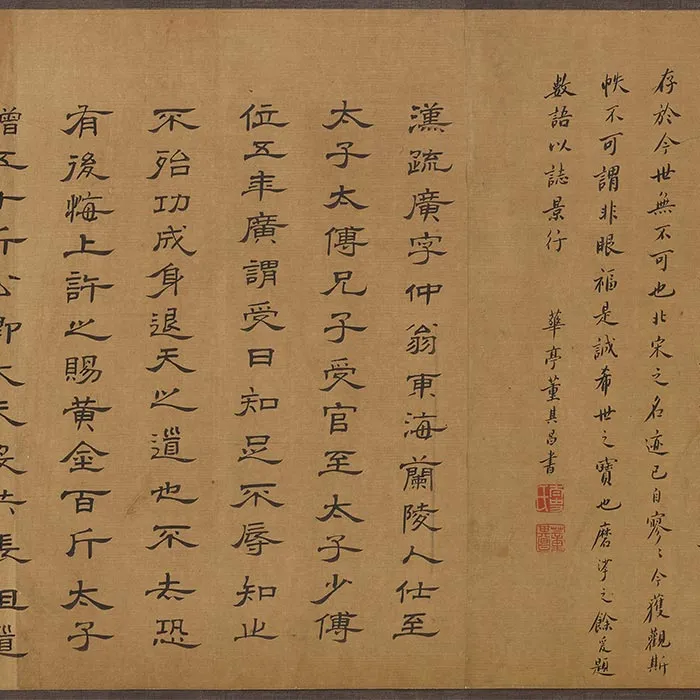 存於今世無不可也北宋之名迹已自寥〻今獲觀斯
帙不可謂非眼福是誠希世之寶也磨挲之餘爰題
數語以誌景行
華亭董其昌書
漢疏廣字仲翁東海蘭陵人仕至
太子太傅兄子受官至太子少傅
位五年廣謂受曰知足不辱知止
不殆功成身退天之道也不去恐
有後悔上許之賜黃金百斤太子
贈五十斤公卿大夫